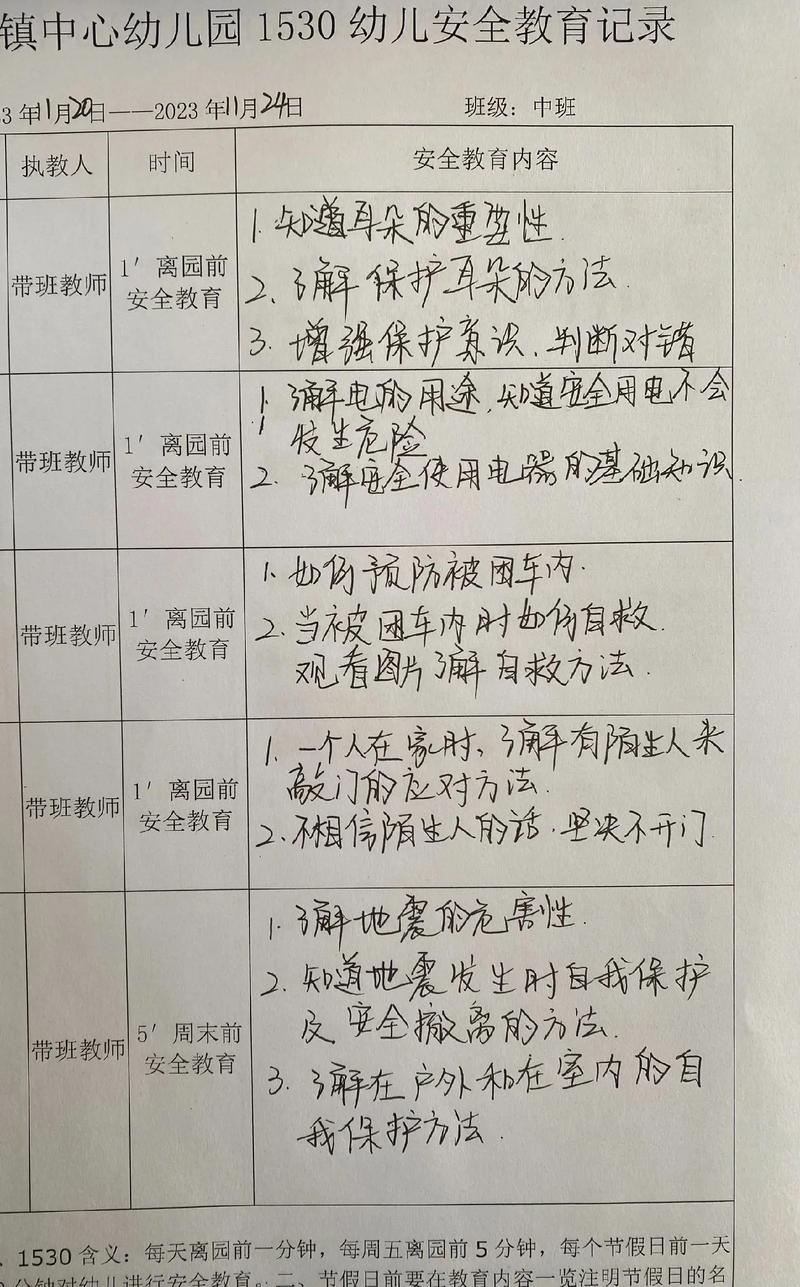 镇中心幼儿园 1530 幼儿安全教育记录
3 年11月20日——2023 年11月24日 班级：中班
执教人 时间 安全教育内容
带班教师 1′离园前安全教育
1. 知道耳朵的重要性.
2. 了解保护耳朵的方法.
3. 增强保护意识、判断对错
带班教师 1′离园前安全教育
1. 了解电的用途,知道安全用电不会
发生危险
2. 了解安全使用电器的基础知识.
带班教师 1′离园前安全教育
1. 如何预防被困车内.
2. 当被困车内时如何自救.
观看图片了解自救方法.
带班教师 1′离园前安全教育
1. 一个人在家时、了解有陌生人来
敲门的应对方法.
2. 不相信陌生人的话.坚决不开门.
带班教师 5′周末前安全教育
1. 了解地震的危害性.
2. 知道地震发生时自我保护
及安全撤离的方法.
3. 了解在户外和在室内的自
我保护方法.
、1530 含义：每天离园前一分钟，每周五离园前 5 分钟，每个节假日前一天
分钟对幼儿进行安全教育。二、节假日前要在教育内容一览注明节假日的名